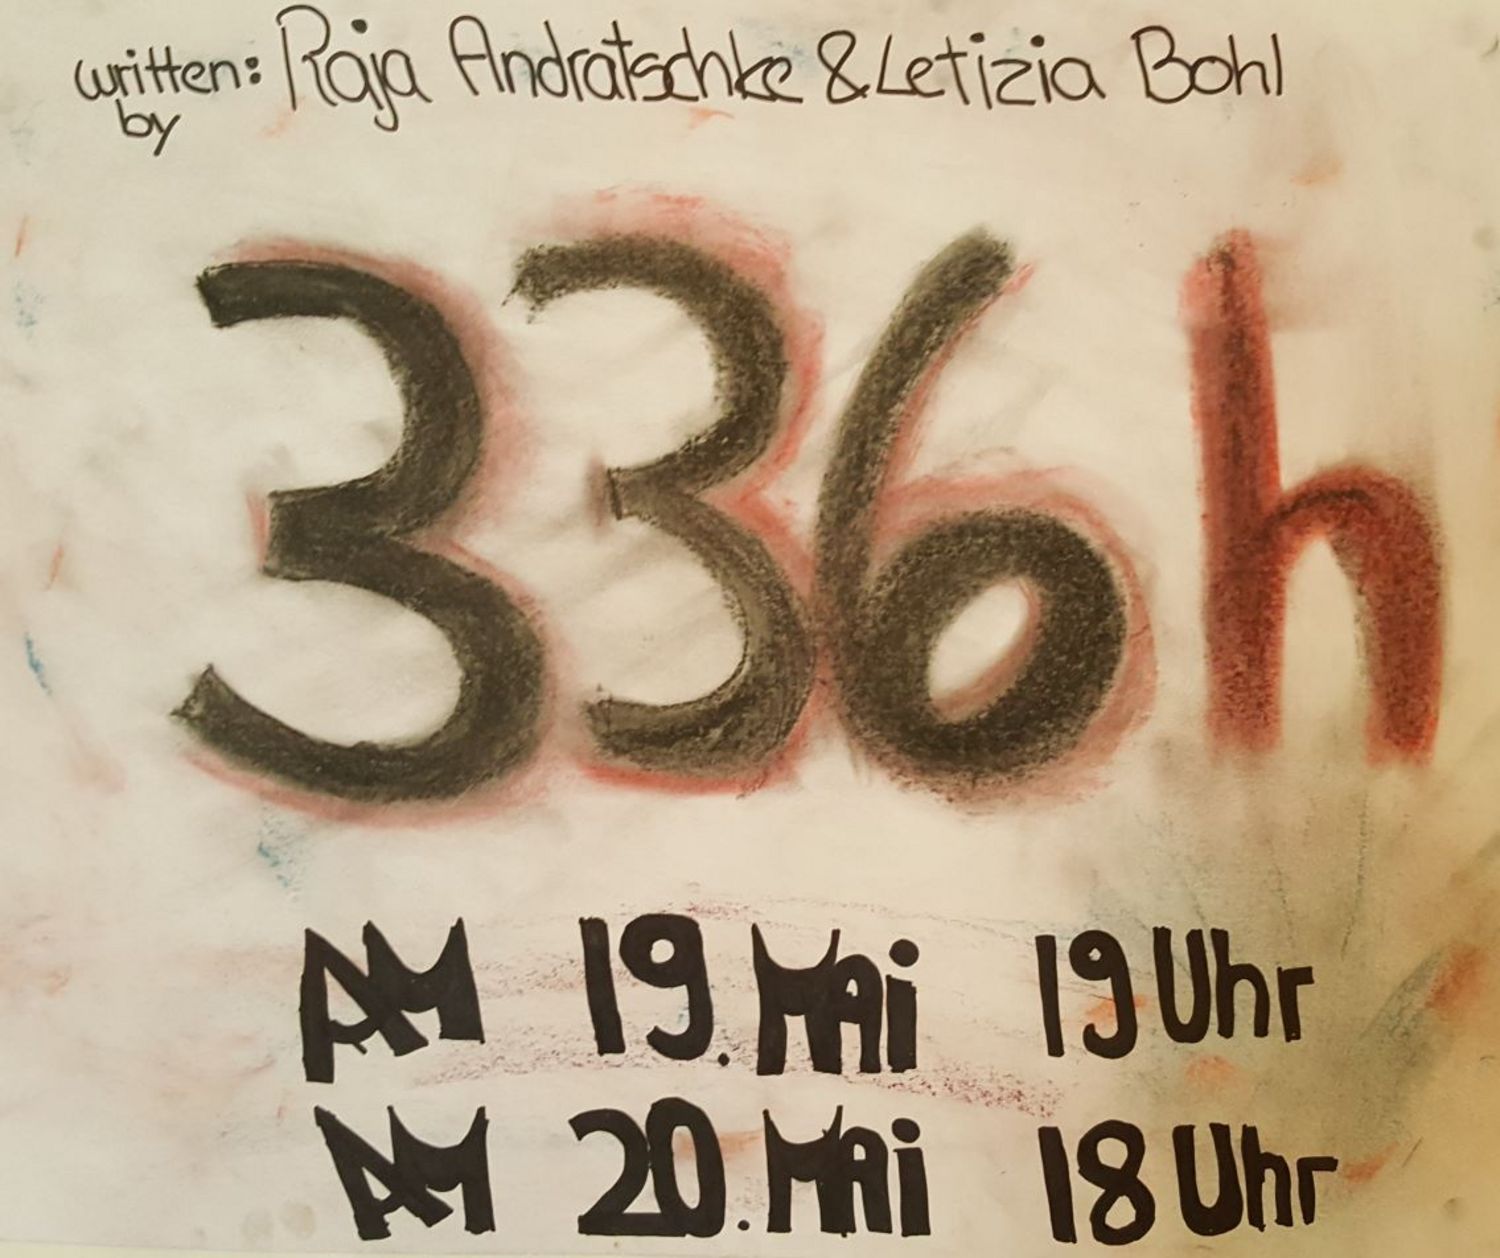 written: Raja Andratschke & Letizia Bohl
by
336h
AM 19. MAi 19 Uhr
AM 20. MAi 18 Uhr